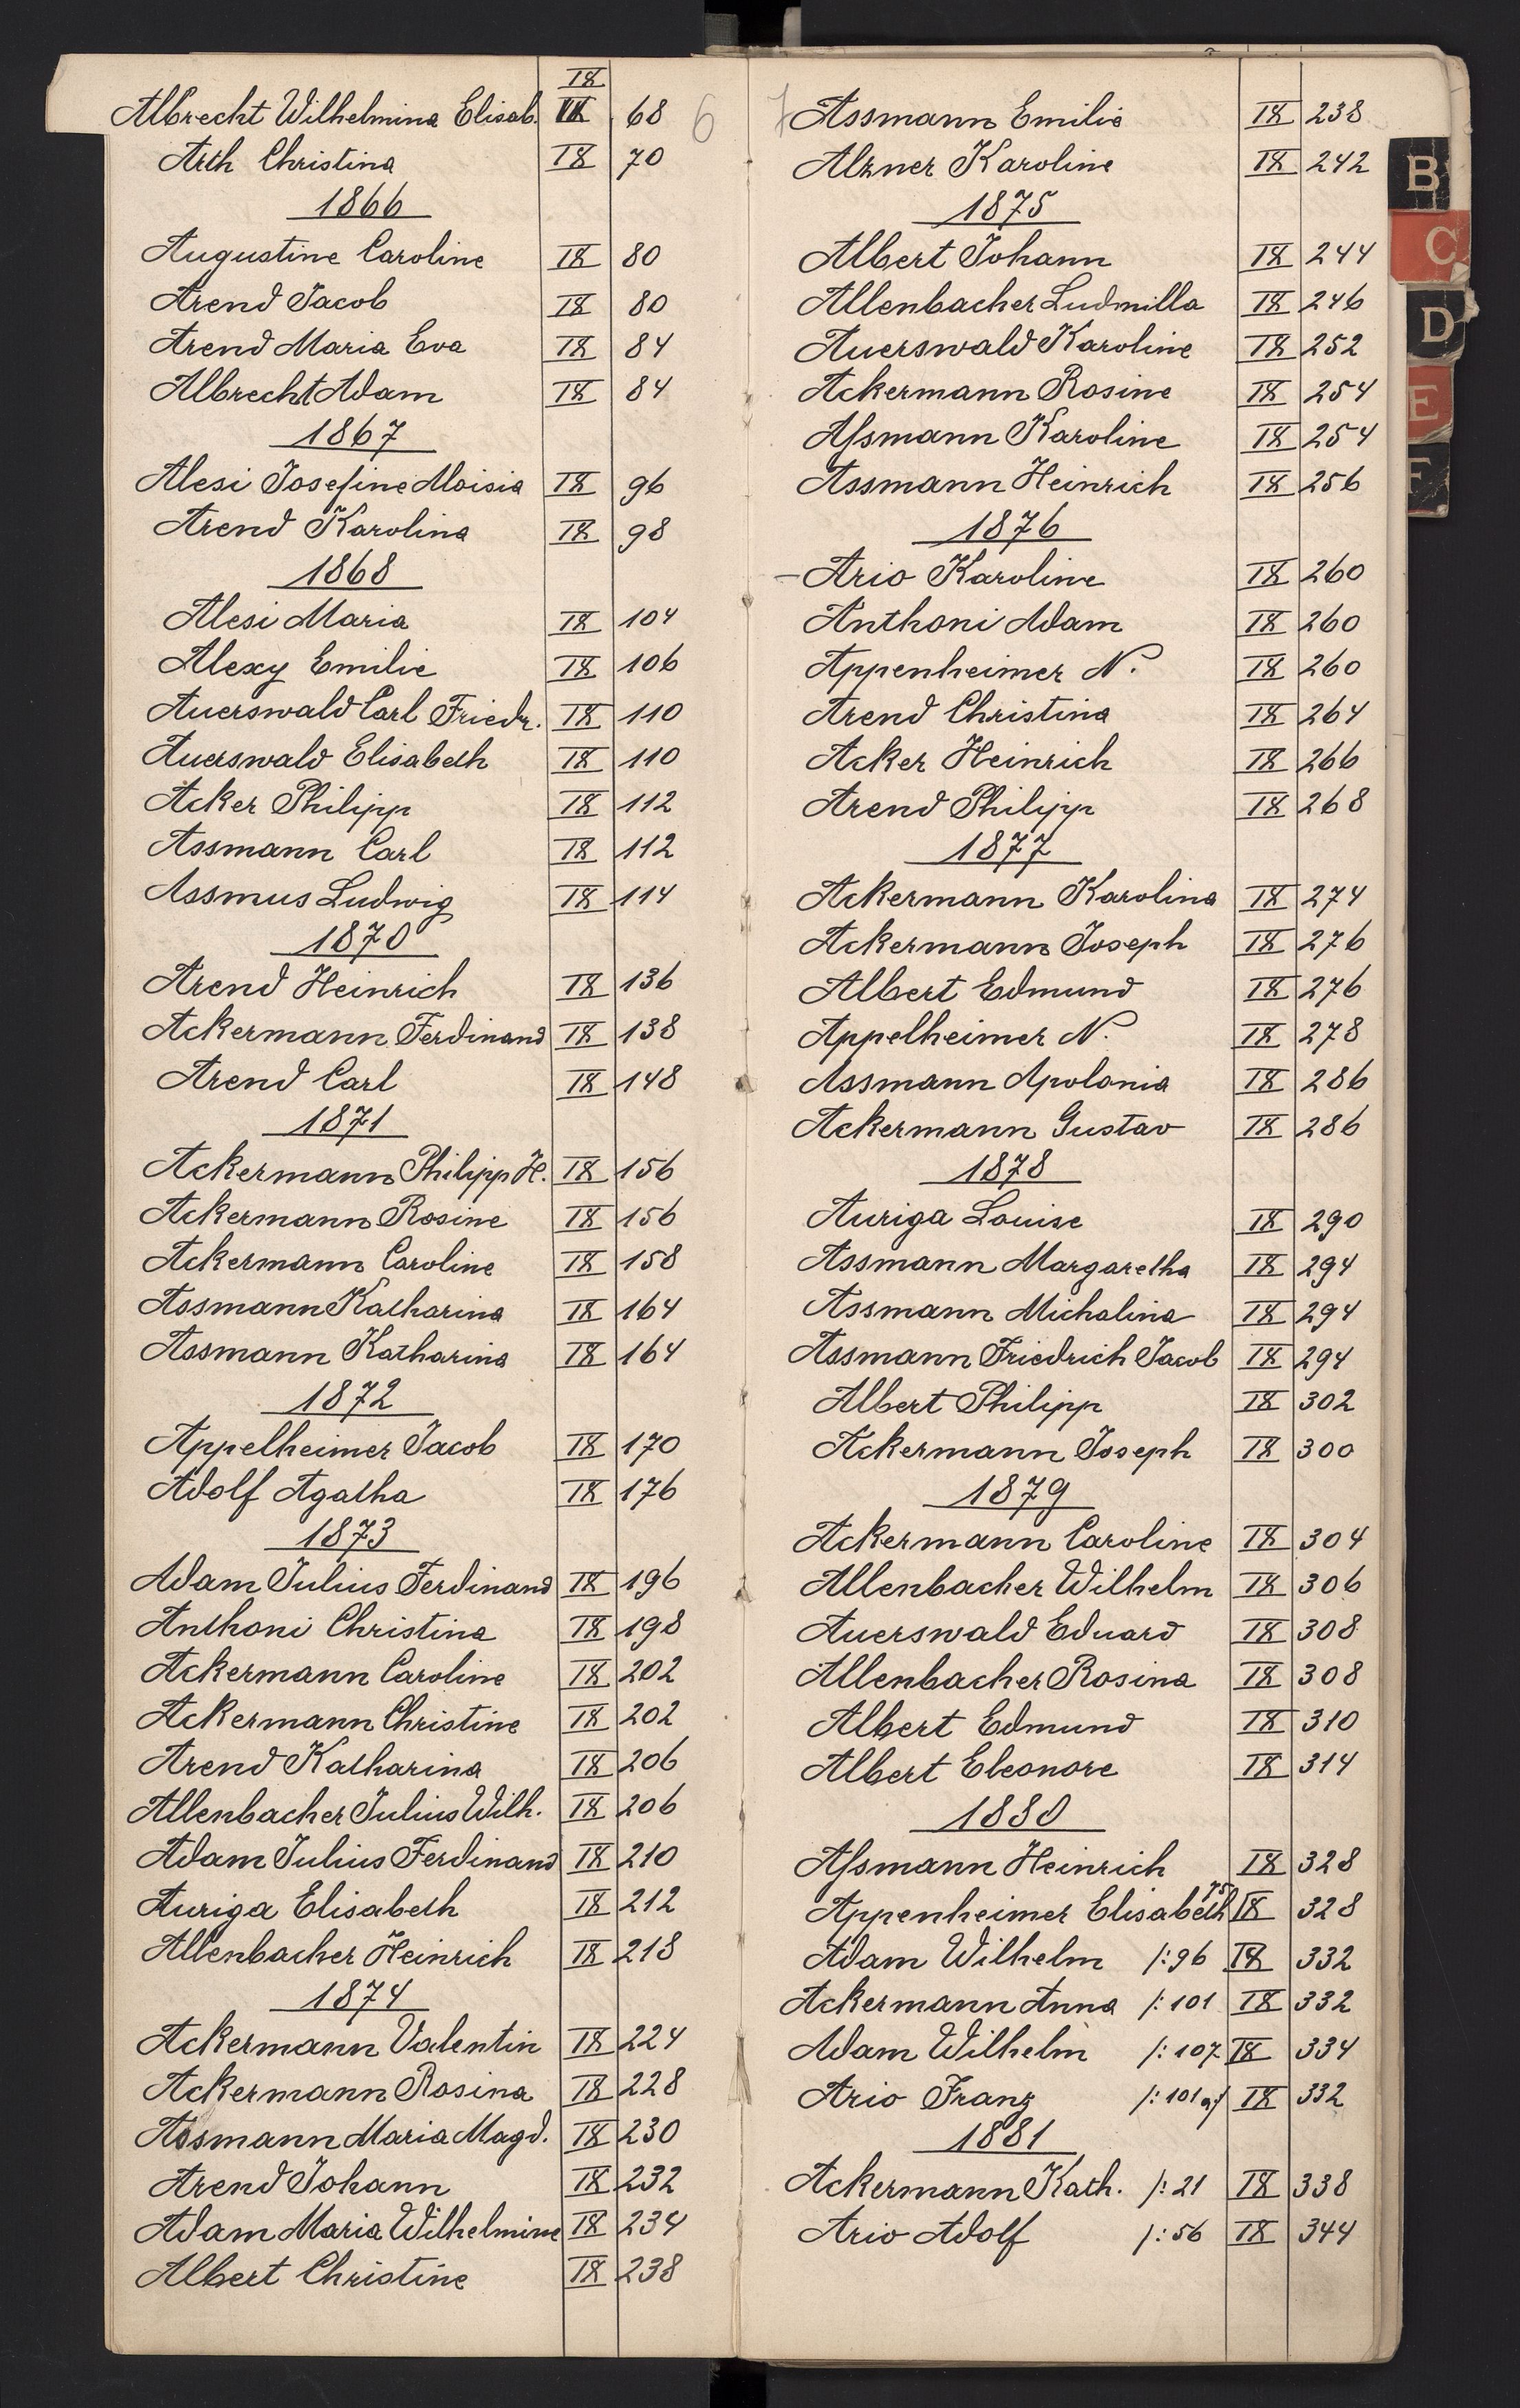 IX
Albrecht Wilhelmina Elisab. 68 6
Arth Christina IX 70
1866
Augustine Caroline IX 80
Arend Jacob IX 80
Arend Maria Eva IX 84
Albrecht Adam IX 84
1867
Alesi Josefine Aloisia IX 96
Arend Karolina IX 98
1868
Alesi Maria IX 104
Alexy Emilie IX 106
Auerswald Carl Friedr. IX 110
Auerswald Elisabeth IX 110
Acker Philipp IX 112
Assmann Carl IX 112
Assmus Ludwig IX 114
1870
Arend Heinrich IX 136
Ackermann Ferdinand IX 138
Arend Carl IX 148
1871
Ackermann Philipp H. IX 156
Ackermann Rosine IX 156
Ackermann Caroline IX 158
Assmann Katharina IX 164
Assmann Katharina IX 164
1872
Appelheimer Jacob IX 170
Adolf Agatha IX 176
1873
Adam Julius Ferdinand IX 196
Anthoni Christina IX 198
Ackermann Caroline IX 202
Ackermann Christine IX 202
Arend Katharina IX 206
Allenbacher Julius Wilh. IX 206
Adam Julius Ferdinand IX 210
Auriga Elisabeth IX 212
Allenbacher Heinrich IX 218
1874
Ackermann Valentin IX 224
Ackermann Rosina IX 228
Assmann Maria Magd. IX 230
Arend Johann IX 232
Adam Maria Wilhelmine IX 234
Albert Christine IX 238
7 Assmann Emilie IX 238
Alzner Karoline IX 242
1875
Albert Johann IX 244
Allenbacher Ludmilla IX 246
Auerswald Karoline IX 252
Ackermann Rosine IX 254
Aſsmann Karoline IX 254
Assmann Heinrich IX 256
1876
– Ario Karoline IX 260
Anthoni Adam IX 260
Appenheimer N. IX 260
Arend Christina IX 264
Acker Heinrich IX 266
Arend Philipp IX 268
1877
Ackermann Karolina IX 274
Ackermann Joseph IX 276
Albert Edmund IX 276
Appelheimer N. IX 278
Assmann Apolonia IX 286
Ackermann Gustav IX 286
1878
Auriga Louise IX 290
Assmann Margaretha IX 294
Assmann Michalina IX 294
Assmann Friedrich Jacob IX 294
Albert Philipp IX 302
Ackermann Joseph IX 300
1879
Ackermann Caroline IX 304
Allenbacher Wilhelm IX 306
Auerswald Eduard IX 308
Allenbacher Rosina IX 308
Albert Edmund IX 310
Albert Eleonore IX 314
1880
Aſsmann Heinrich IX 328
Appenheimer Elisabeth 75 IX 328
Adam Wilhelm /:96 IX 332
Ackermann Anna /:101 IX 332
Adam Wilhelm /:107 IX 334
Ario Franz /:101 a/ IX 332
1881
Ackermann Kath. /:21 IX 338
Ario Adolf /:56 IX 344
B
C
D
E
F